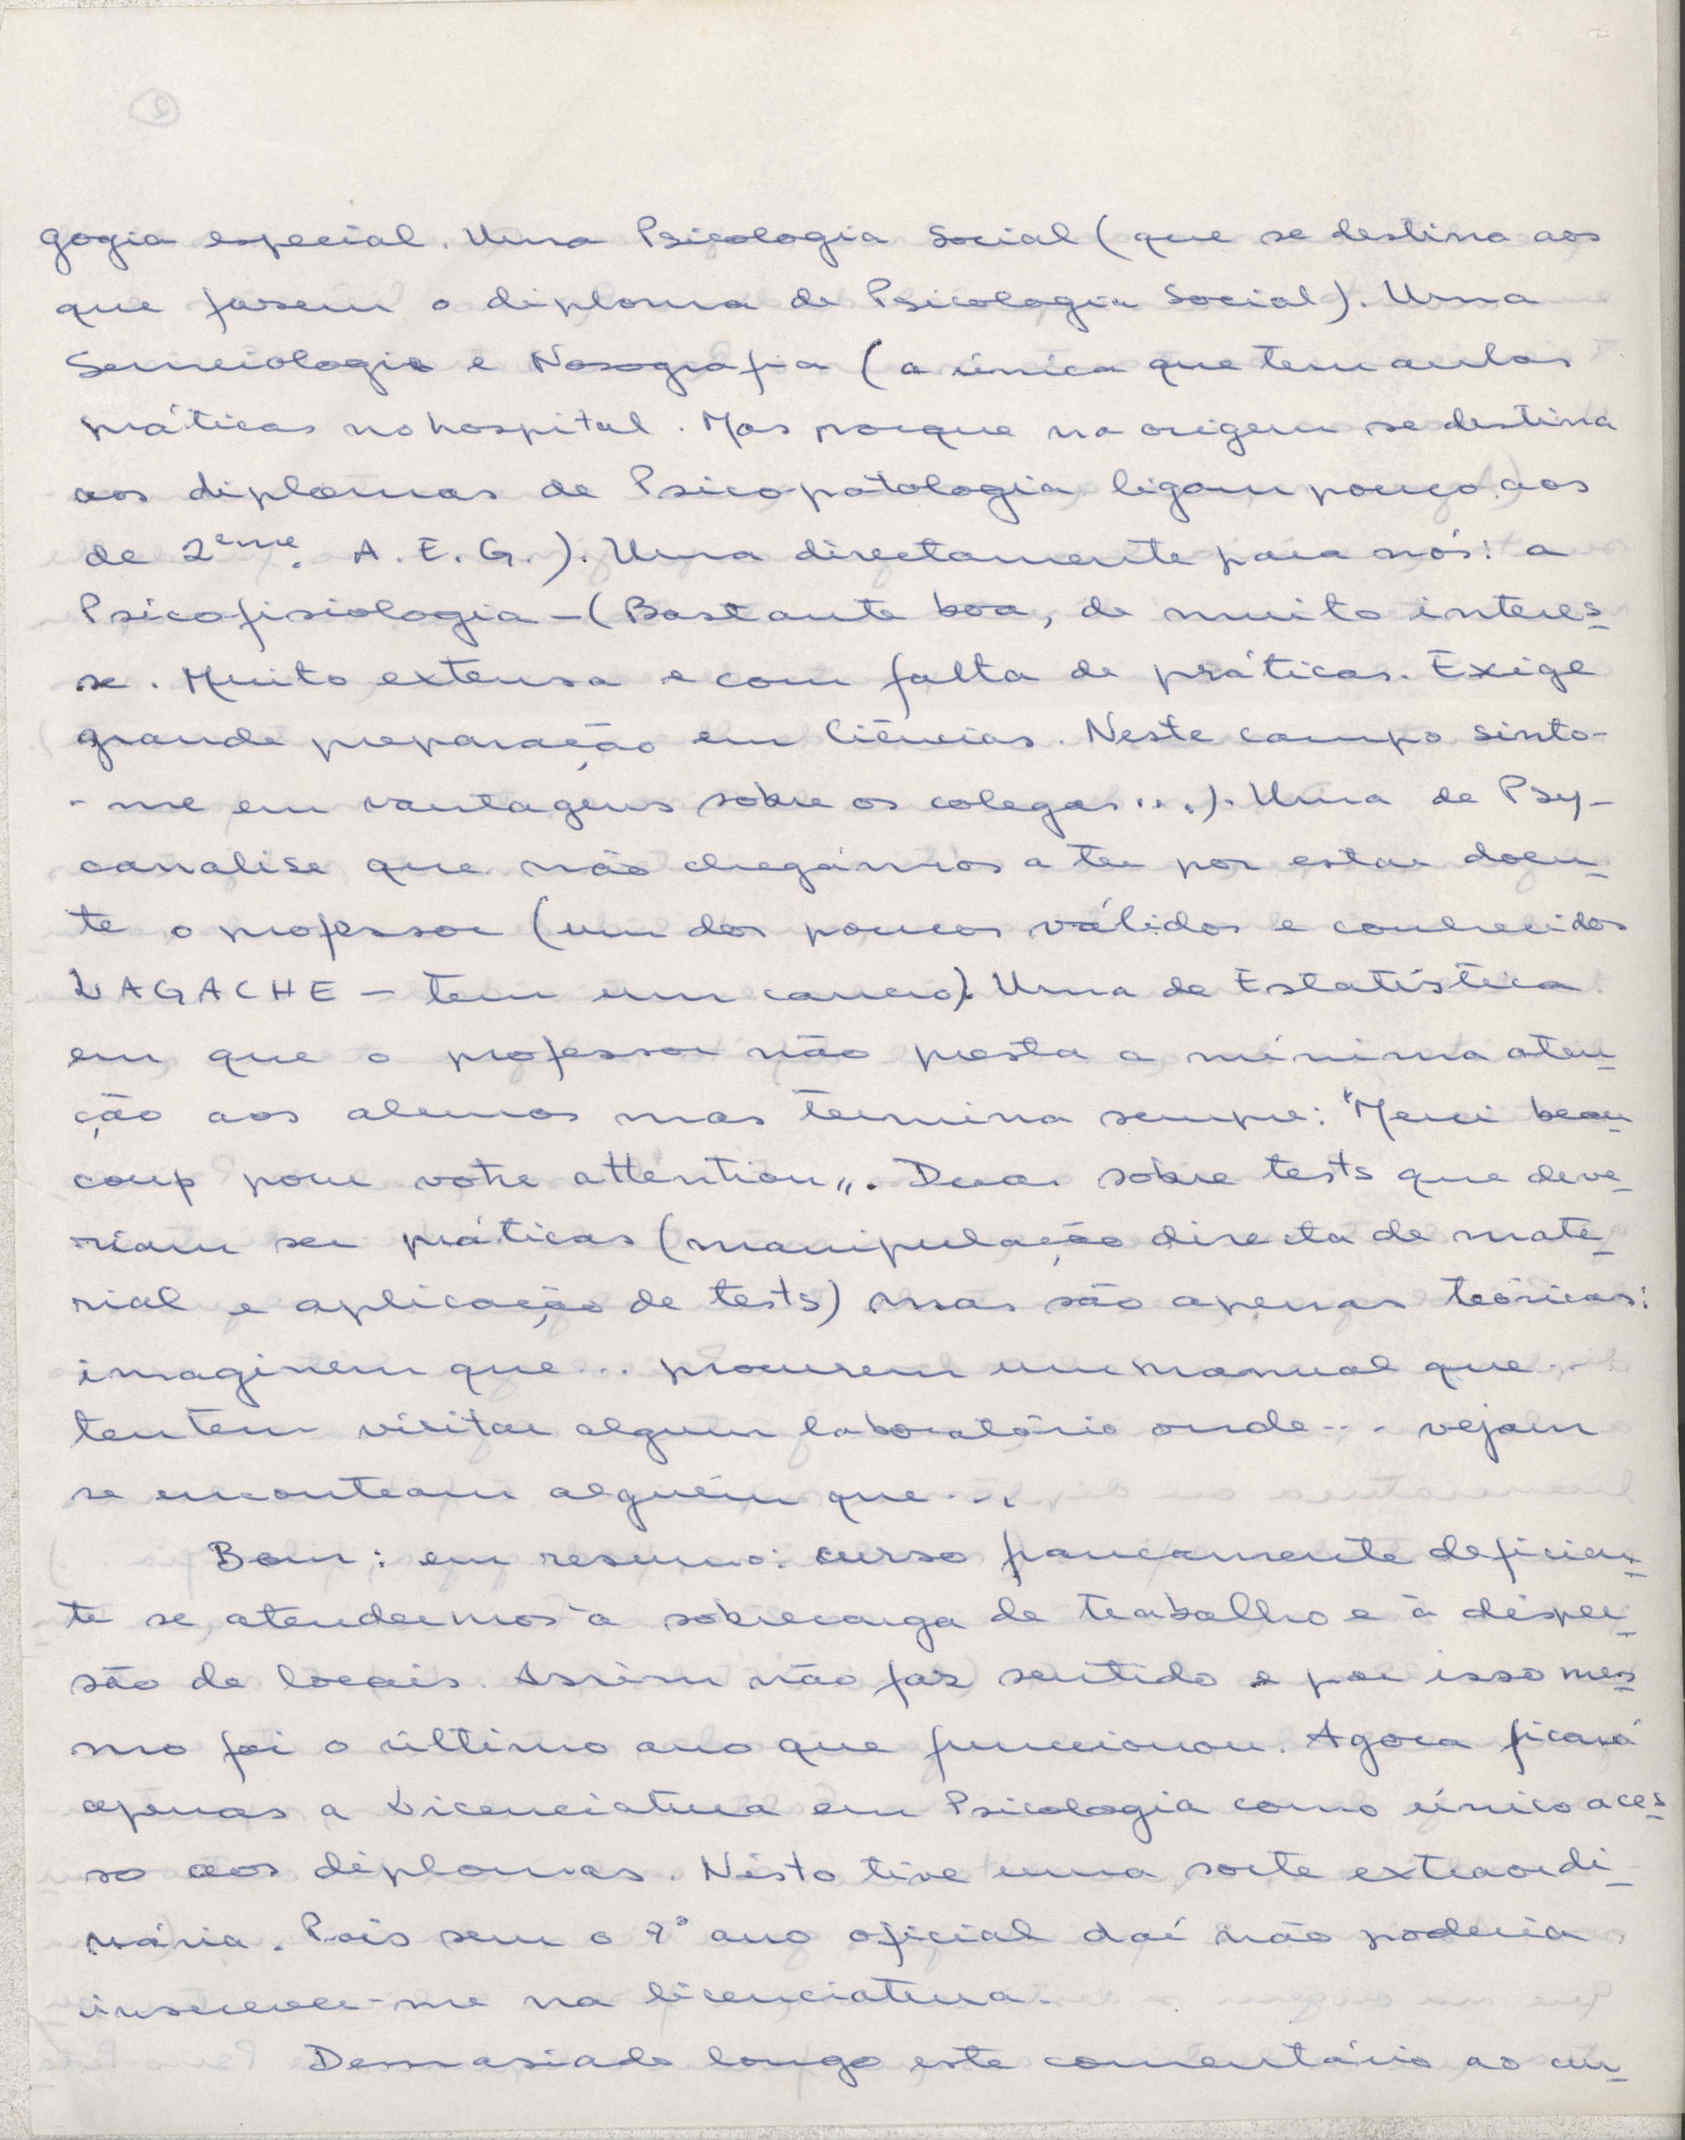 gogia especial. Uma Psicologia Social (que se destina aos
que fazem o diploma de Psicologia Social). Uma
Semeiologia e Nosografia (a única que tem aulas
práticas no hospital. Mas porque na origem se destina
aos diplomas de Psicopatologia ligam pouco aos
de 2ème. A. E. G.). Uma directamente para nós: a
Psicofisiologia - (Bastante boa, de muito interes-
se. Muito extensa e com falta de práticas. Exige
grande preparação em Ciências. Neste campo sinto-
- me em vantagens sobre os colegas...). Uma de Psy-
canalise que não chegámos a ter por estar doen-
te o professor (um dos poucos válidos e conhecidos
LAGACHE - tem um cancro). Uma de Estatística
em que o professor não presta a mínima aten-
ção aos alunos mas termina sempre: "Merci beau-
coup pour votre attention". Duas sobre tests que deve-
riam ser práticas (manipulação directa de mate-
rial e aplicação de tests) mas são apenas teóricas:
imaginem que... procurem um manual que...
tentem visitar algum laboratório onde... vejam
se encontram alguém que...
Bom: em resumo: curso francamente deficien-
te se atendermos à sobrecarga de trabalho e à disper-
são de locais. Assim não faz sentido e por isso mes-
mo foi o último ano que funcionou. Agora ficará
apenas a Licenciatura em Psicologia como único aces-
so aos diplomas. Nisto tive uma sorte extraordi-
nária. Pois sem o 7º ano oficial daí não poderia
inscrever-me na licenciatura.
Demasiado longo este comentário ao cur-